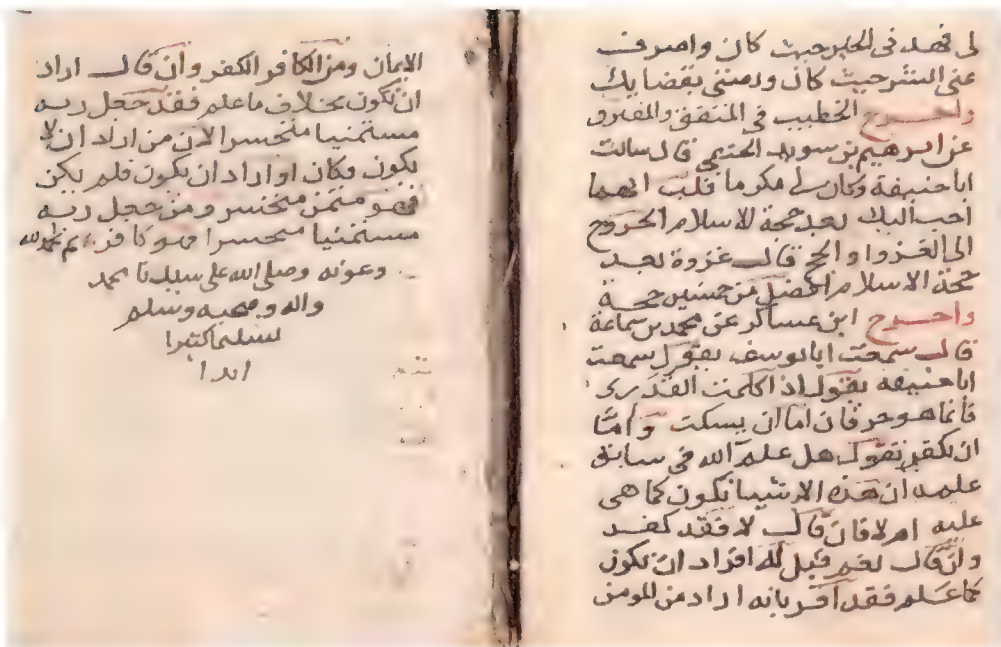 لى فهد فى الخير حيث كان واصرف
عنى الشر حيث كان ورضنى بقضايك
واخرج الخطيب فى المتفق والمفترق
عن ابرهيم بن سويد الحنفى قال سالت
اباحنيفة وكان لى مكرما قلت ايهما
احب اليك بعد حجة الاسلام الخروج
الى الغزوا والحج قال غزوة بعد
حجة الاسلام افضل من خمسين حجة
واخرج ابن عساكر عن محمد بن سماعة
قال سمعت ابايوسف يقول سمعت
اباحنيفه يقول اذا كلمت القدرى
فانما هو حرفان اما ان يسكت واما
ان يكفر نقول هل علم الله فى سابق
علمه ان هذه الاشيا تكون كما هى
عليه ام لا فان قال لا فقد كفر
وان قال نعم قيل له افراد ان تكون
كما علم فقد اقر بانه اراد من المومن
الايمان ومن الكافر الكفر وان قال اراد
ان تكون بخلاف ما علم فقد جعل ربه
مستمنيا متحسرا لان من اراد ان لا
يكون وكان او اراد ان يكون فلم يكن
فهو متمن متحسر ومن جعل ربه
مستمنيا متحسرا فهو كافر تم بحمد الله
وعونه وصلى الله على سيدنا محمد
واله وصحبه وسلم
تسليما كثيرا
ابدا